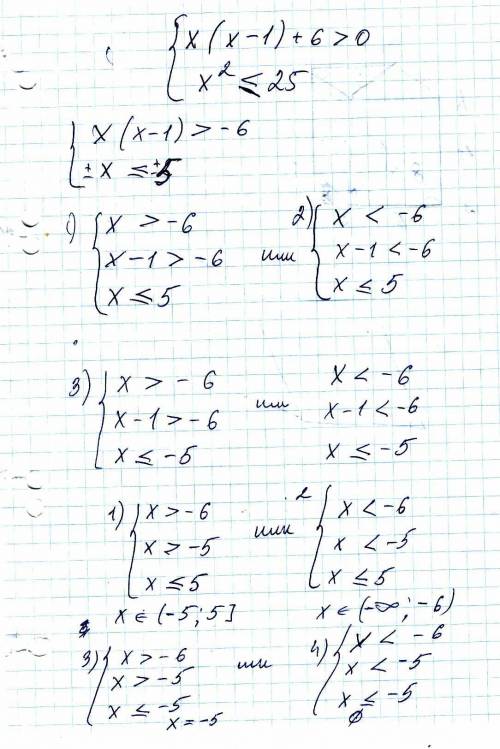 x(x-1)+6>0
x² ≤ 25
x(x-1) > -6
±x ≤ ±5
1) x > -6
x-1 > -6
x ≤ 5
или
2) x < -6
x-1 < -6
x ≤ 5
3) x > -6
x-1 > -6
x ≤ -5
или
x < -6
x-1 < -6
x ≤ -5
1) x > -6
x > -5
x ≤ 5
x ∈ (-5; 5]
или
2 x < -6
x < -5
x ≤ 5
x ∈ (-∞; -6)
3) x > -6
x > -5
x ≤ -5
x = -5
или
4) x < -6
x < -5
x ≤ -5
ø